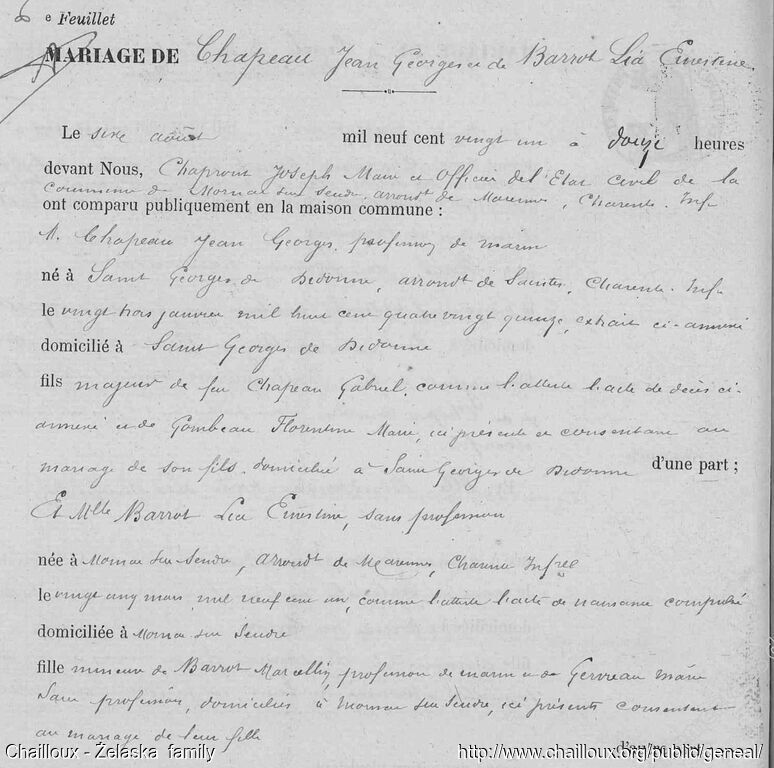 6 e Feuillet
MARIAGE DE Chapeau Jean Georges et de Barrot Lia Ernestine
Le six août mil neuf cent vingt un à douze heures
devant Nous, Chaprout Joseph Maire et Officier de l'Etat Civil de la
commune de Mornac sur Seudre, arrondt de Marennes, Charente Infre
ont comparu publiquement en la maison commune :
M. Chapeau Jean Georges, profession de marin
né à Saint Georges de Didonne, arrondt de Saintes, Charente Infre
le vingt trois janvier mil huit cent quatre vingt quinze, extrait ci-annexé
domicilié à Saint Georges de Didonne
fils majeur de feu Chapeau Gabriel, comme l'atteste l'acte de décès ci-
annexé et de Gombeau Florentine Marie, ici présente et consentante au
mariage de son fils, domiciliée à Saint Georges de Didonne d'une part ;
Et Mlle Barrot Lia Ernestine, sans profession
née à Mornac sur Seudre, arrondt de Marennes, Charente Infre
le vingt cinq mars mil neuf cent un, comme l'atteste l'acte de naissance compulsé
domiciliée à Mornac sur Seudre
fille mineure de Barrot Marcellin, profession de marin et de Gerveau Marie
sans profession, domiciliés à Mornac sur Seudre, ici présents consentant
au mariage de leur fille
d'autre part
Chailloux - Želaska family http://www.chailloux.org/public/geneal/